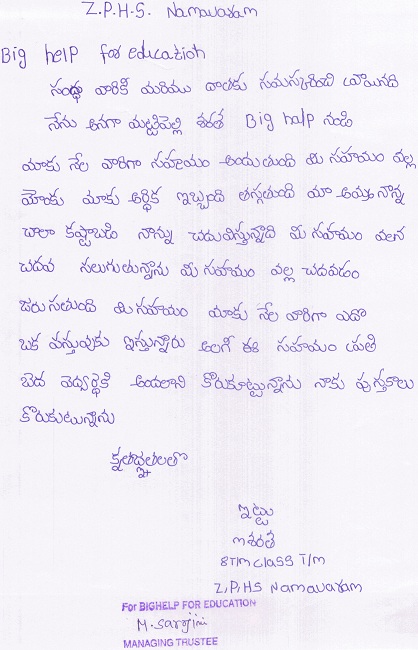 Z.P.H.S. Namavaram
Big help for education
సంస్థ వారికి మరియు దాతకు నమస్కరించి
నేను అనగా మట్టిపెల్లి శరత్ Big help నుండి
మాకు నేల వారిగా సహయం అందుతుంది మి సహయం వల్ల
మాకు ఆర్థిక ఇబ్బంది తగ్గుతుంది మా అమ్మ నాన్న
చాలా కష్టాబడి నాన్ను చదువిస్తున్నాది మి సహయం వలన
చదవ నలుగుతున్నాను మీ సహయం వల్ల చదవడం
జరుగుతుంది మి సహయం మాకు నేల వారిగా ఎదొ
ఒక వస్తువుకు ఇస్తున్నారు అలగే ఈ సహయం ప్రతి
బెద వెద్యర్థికి అందలాని కొరుకుట్టున్నాను నాకు పుస్తకాలు
కొరుకుటున్నాను
కృతజ్ఞతలతొ
ఇట్లు
m శరత్
8Th CLASS T/M
Z.P.HS Namavaram
For BIGHELP FOR EDUCATION
M. Sarojini
MANAGING TRUSTEE